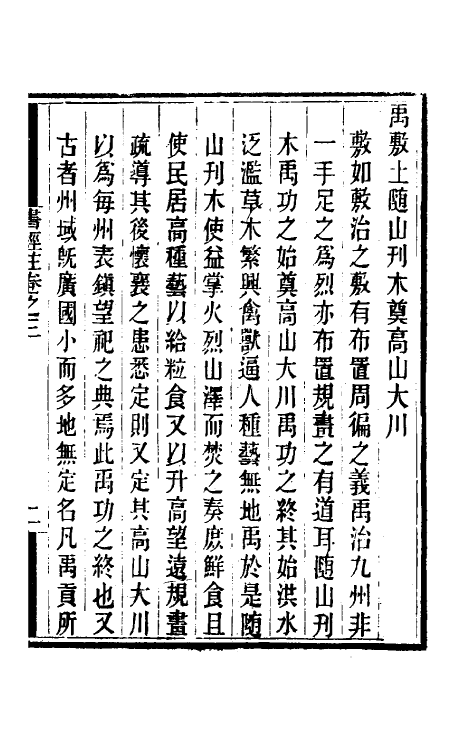 禹敷土随山刊木奠高山大川
敷如敷治之敷有布置周徧之義禹治九州非
一手足之為烈亦布置規畫之有道耳随山刊
木禹功之始奠高山大川禹功之終其始洪水
泛濫草木繁興禽獸逼人種藝無地禹於是随
山刊木使益掌火烈山澤而焚之奏庶鮮食且
使民居高種藝以給粒食又以升高望遠規畫
疏導其後懷襄之患悉定則又定其高山大川
以為每州表鎮望祀之典焉此禹功之終也又
古者州域既廣國小而多地無定名凡禹貢所
書經注卷之三
二